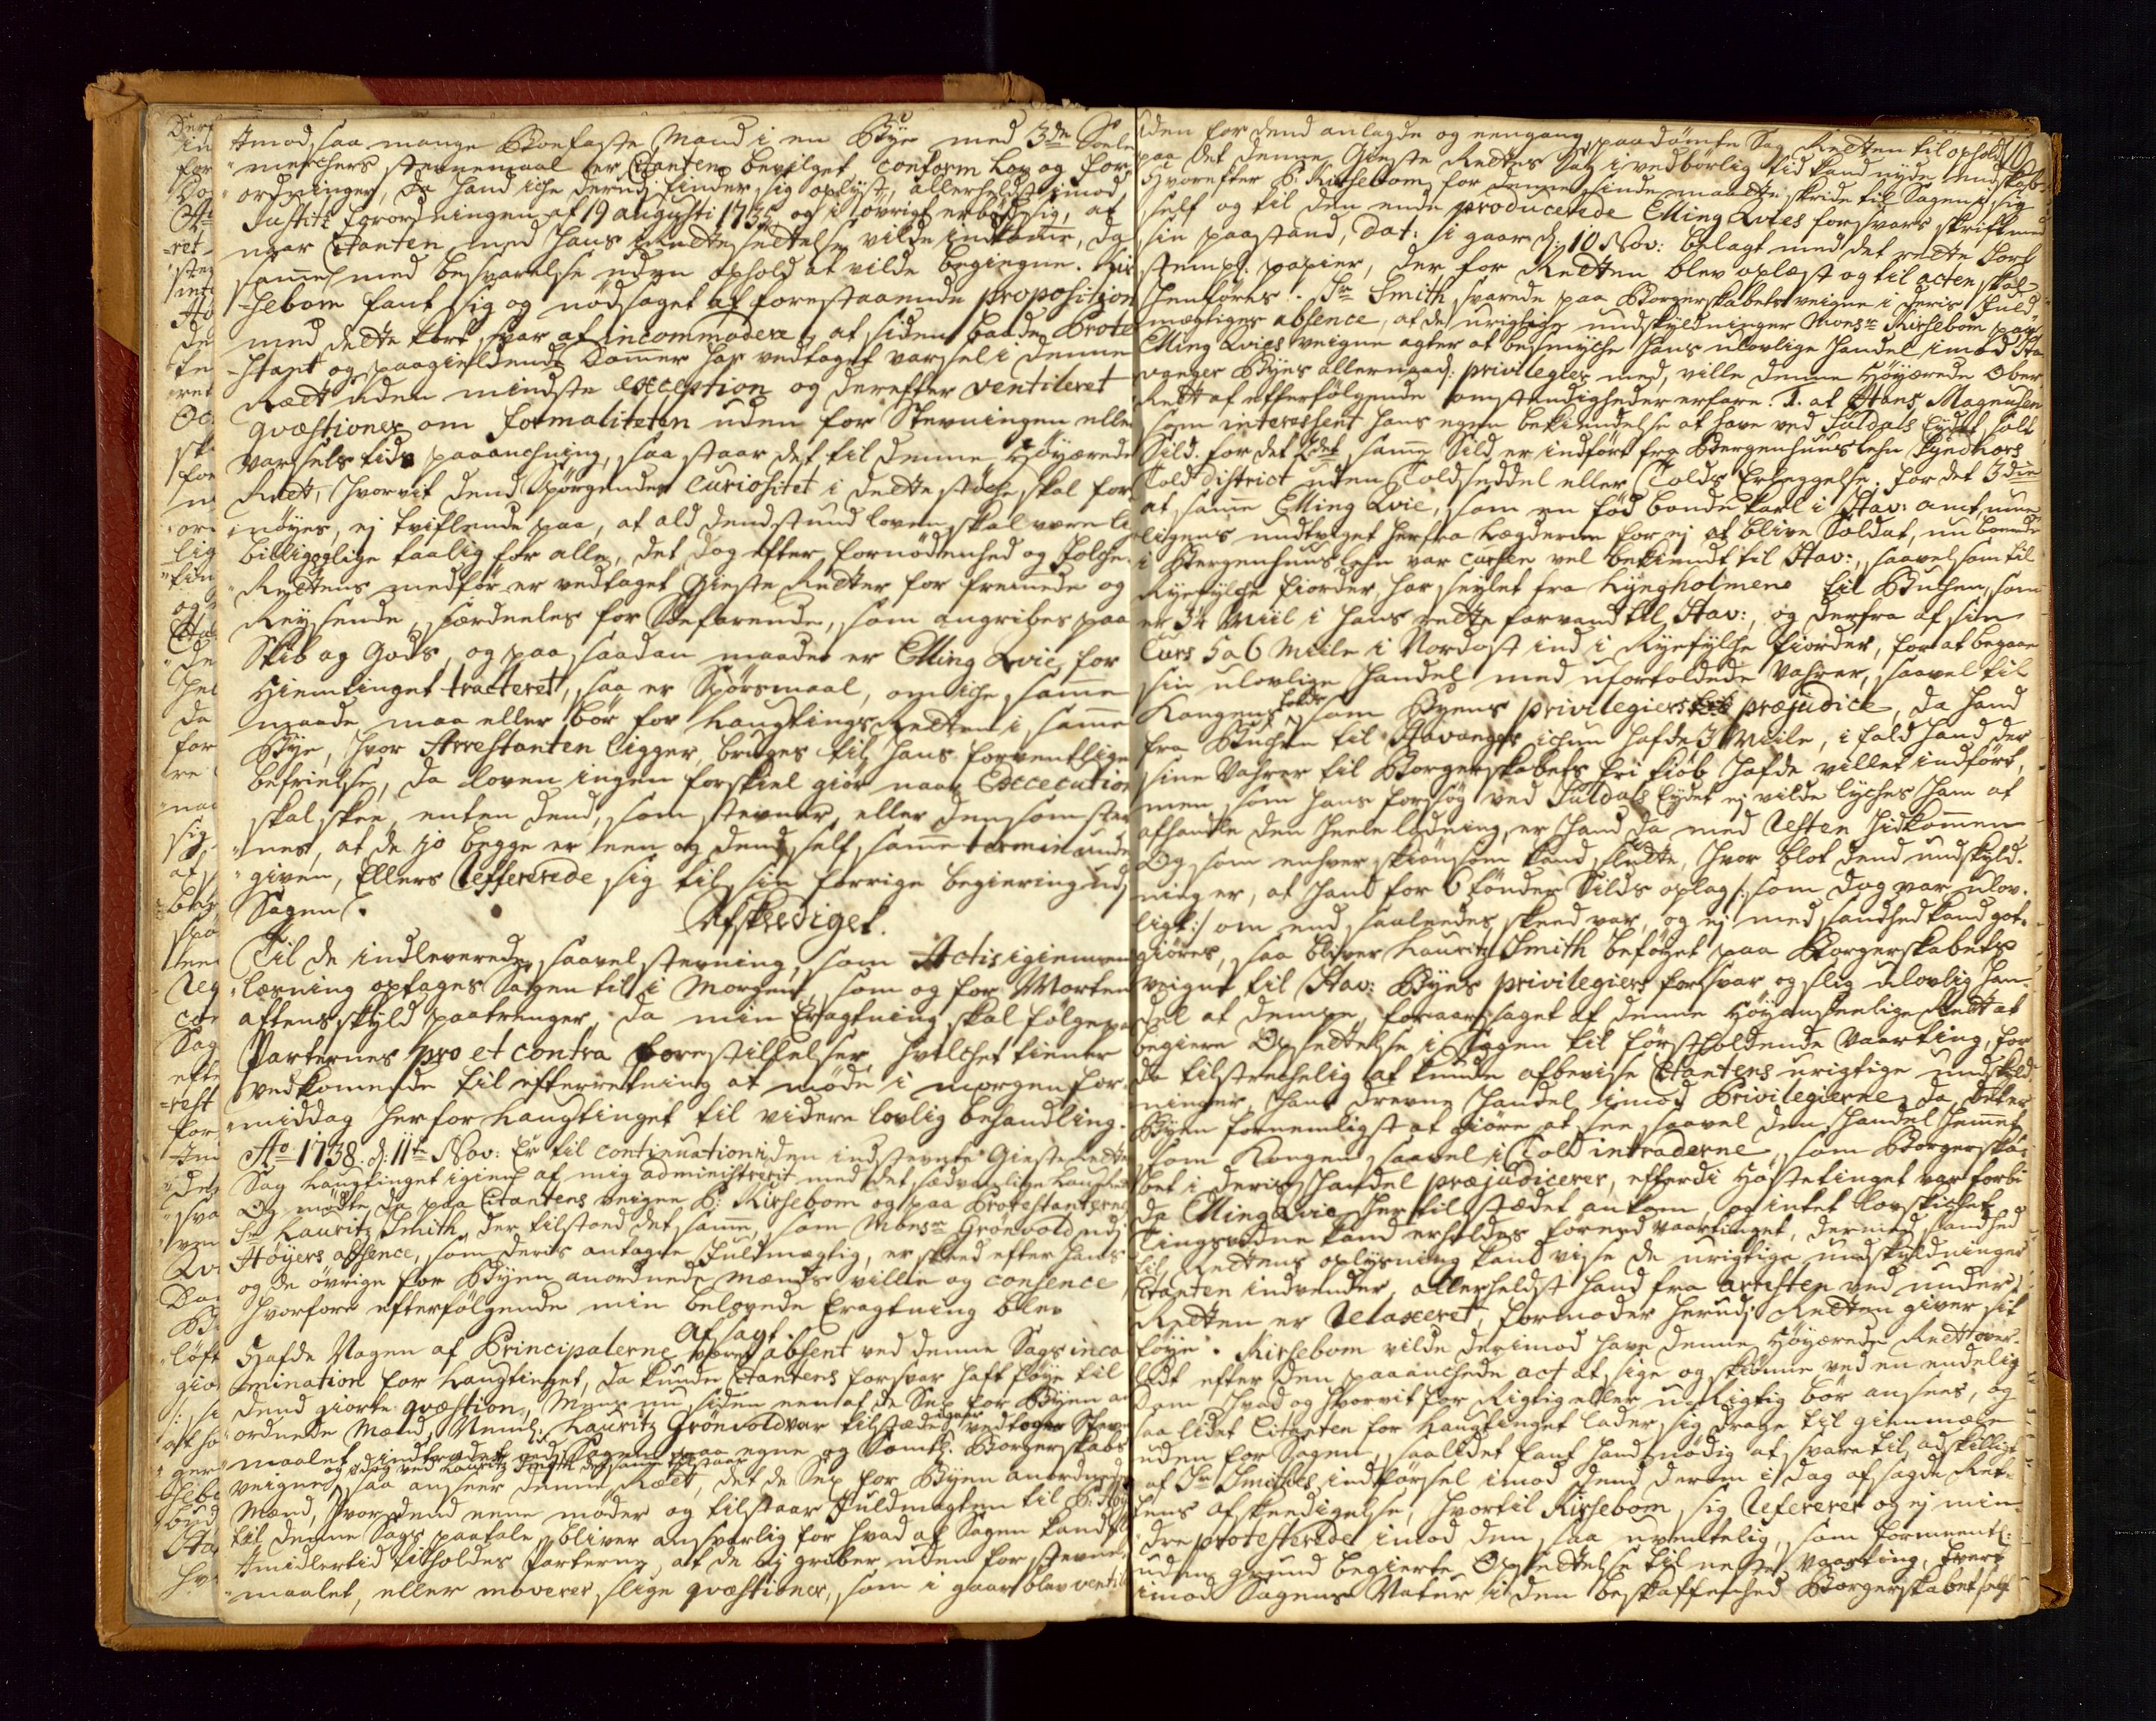 imod saa mange Boefaste Mænd i en Bye med 3de Soele
mercher stevnemaal er Citanten bevilget conform Lov og for
ordninger, da hand iche derudj finder sig oplyst, allerheldst imod
Justitz forordningen af 19 augusti 1735 og i övrigt erböd sig, at
naar Citanten med hans Irettesettelse vilde indkomme, da
samme med besvarelse uden ophold at vilde begiegne. Kir
sebom fant sig og nödsaget af forestaaende proposition
med dette kort svar at incommodere, at siden baade Prote
stant og paagieldende Dommer har vedtaget varsel i denne
Rædt uden mindste exception og derefter ventileret
qvæstioner om formaliteten uden for Stevningen eller
varsels tids paaanchning, saa staar det til denne Höyærede
Rædt, hvorvit dend Spörgendes Curiositet i dette støche skal for
nöyes, ej tviflende paa, at ald dend stund loven skal være li
billig og lige taalig for alle, det dog efter fornödenhed og Folche
Rædtens medför er vedtaget Gieste Rædter for fremmede og
Reysende, særdeeles for Söefarende, som angribes paa
Skib og Gods, og paa saadan maade er Elling Qvie for
Hiemtinget tracteret, saa er Spörsmaal, om iche samme
maade maa eller bör for Laugtings Rædten i samme
Bye, hvor Arrestanten ligger, bruges til hans forventlige
befrielse, da loven ingen forskiel giör naar Execution
skal skee, enten dend, som stevner, eller den som stev
nes, at de jo begge er een og dend self samme termin unde
given, Ellers Refferende sig til sin forrige begiering udj
Sagen.
Afskeediget.
Til de indleverede saavel stevning, som Actis igiennem
læsning optages Sagen til i Morgen, som og for Morten
aftens skyld paatrenger, da min Eragtning skal fölge paa
Parternes pro et contra forestillelser, hvilchet tiener
vedkommende til efterretning at möde i morgen for
middag her for Laugtinget til videre lovlig behandling.
Ao 1738. d: 11te Nov: Er til continuation i den indstevnte Gieste Rædts
Sag Laugtinget igien af mig administreret med det sædvanlige Laugræt
Og mödte da paa Citantens veigne B: Kirsebom og paa Protestanternes
Sr Lauritz Smith, der tilstoed det samme, som Monsr Grönvold udj
Höyers absence, som deris antagne Fuldmægtig, er skeed efter hans
og de övrige for Byen anordnede mænds villie og consence
hvorfore efterfölgende min belovede Eragtning blev
Afsagt.
Hafde Nogen af Principalerne været absent ved denne Sags inca
mination for Laugtinget, da kunde Citantens forsvar haft föye til
dend giorte qvæstion, Mens nu siden een af de Sex for Byen an
ordnede Mænd, Nemlig Lauritz Grönvold var tilstæde igaar vedtoges Steve
maalet indtrædet ved Sagen paa egne og Samtl. Borgerskabs
og i dag ved Lauritz Smith det samme tilstaar
veigne, saa anseer denne Rædt, det de Sex for Byen anordnede
Mænd, hvor dend eene möder og tilstaar Fuldmagten til P: Höy
til denne Sags paatale, bliver ansvarlig for hvad af Sagen kand fl
Imidlertid tilholdes Parterne, at de ej griber uden for stevne
maalet, eller moverer slige qvæstioner, som i gaar blev ventil
10
siden for dend anlagde og eengang paadömte Sag Rædten til ophold
paa det denne Gieste Rædtes Sag i vedbörlig tid kand nyde endskab.
Hvorefter B. Kirsebom for denne sinde maatte skride til Sagen i sig
self og til den ende producerede Elling Qvies forsvars skrift med
sin paastand, dat: i gaar d: 10 Nov: belagt med det rette kort
stempl. papier, der for Rædten blev oplæst og til acten skal
henföres. Sr Smith svarede paa Borgerskabets veigne i deris Fuld
mægtiges absence, at de urigtige undskyldninger Monsr Kirsebom paa
Elling Qvies veigne agter at besmyche hans ulovlige handel imod Sta
vanger Byes allernaad: privilegier med, ville denne Höyærede Ober
Rædt af efterfölgende omstendigheder erfare. 1. at Hans Magnusen
som interessent hans egen bekiendelse at have ved Suldals Eydet solt
Sild. for det 2det samme Sild er indfört fra Bergenhuus Lehn Syndhors
Told district uden Toldseddel eller Tolds Erleggelse. for det 3die
at samme Elling Qvie, som en föd bonde karl i Stav: amt nemme
ligens undviget herfra Lægderne for ej at blive Soldat, nu boende
i Bergenhuus Lehn var cursen vel bekiendt til Stav:, saavel som til
Ryefylche fiorder, har seylet fra Lyngholmene til Buchen, som
er 3¼ Miil i hans rette farvand til Stav:, og derfra af sin
Curs 5 a 6 Miile i Nordost ind i Ryefylche fiorder, for at begaae
sin ulovlige handel med ufortoldede Vahrer, saavel til
Kongens tolds, som Byens privilegiers præjudice, da hand
fra Buchen til Stavanger ichun hafde 3 Miile, i fald hand der
sine Vahrer til Borgerskabets fri kiöb hafde villet indfört,
men som hans forsög ved Suldals Eydet ej vilde lyches ham at
afhandle den heele ladning, er hand da med Resten hidkommen
Og som enhver skiönsom kand slutte, hvor blot dend undskyld
ning er, at hand for 6 tönder Silds oplag /: som dog var ulov
ligt :/ om end saaledes skeed var, og ej med sandhed kand got
giöres, saa bliver Lauritz Smith beföyet paa Borgerskabets
veigne til Stav: Byes privilegiers forsvar og slig ulovlig han
del at dempe, foraarsaget af denne Höyanseelige Rædt at
begiere Opsettelse i Sagen til först holdende Vaarting, for
da tilstrechelig at kunde afbevise Citantens urigtige undskyld
ninger, hans drevne handel imod Privilegierne, da dette
Byen fornemligst at giöre at see saavel den handel hemmet
som Kongen saavel i Told intraderne, som Borgerska
bet i deris handel præjudicerer, efterdi Hösttinget var forbi
da Elling Qvie her til stædet ankom, og intet lovskichet
Tingsvidne kand erholdes forend vaartinget, dermed sandhed
til Rædtens oplysning kand vise de urigtige undskyldninger
Citanten indvender, allerheldst hand fra arresten ved under
Rædten er Relaxeret, formoder herudj Rædten giver sit
föye. Kirsebom vilde derimod have denne Höyærede Rædt over
ladt efter den paaanchede act at sige og skiönne ved en endelig
Dom hvad og hvorvit for Rigtig eller uRigtig bör ansees, og
saa lidet Citanten for Laugtinget lader sig drage til gienmæle
uden for Sagen, saa lidet fant hand nödig at svare til adskilligt
af Sr Smithes indförsel imod dend derom i dag afsagde Ret
tens afskeedigelse, hvortil Kirsebom sig Refererer og ej min
dre protesterede imod den saa uventelig, som formeentl:
uden grund begierte Opsettelse til neste Vaarting, tvert
imod Sagens Natur i den beskaffenhed Borgerskabet self